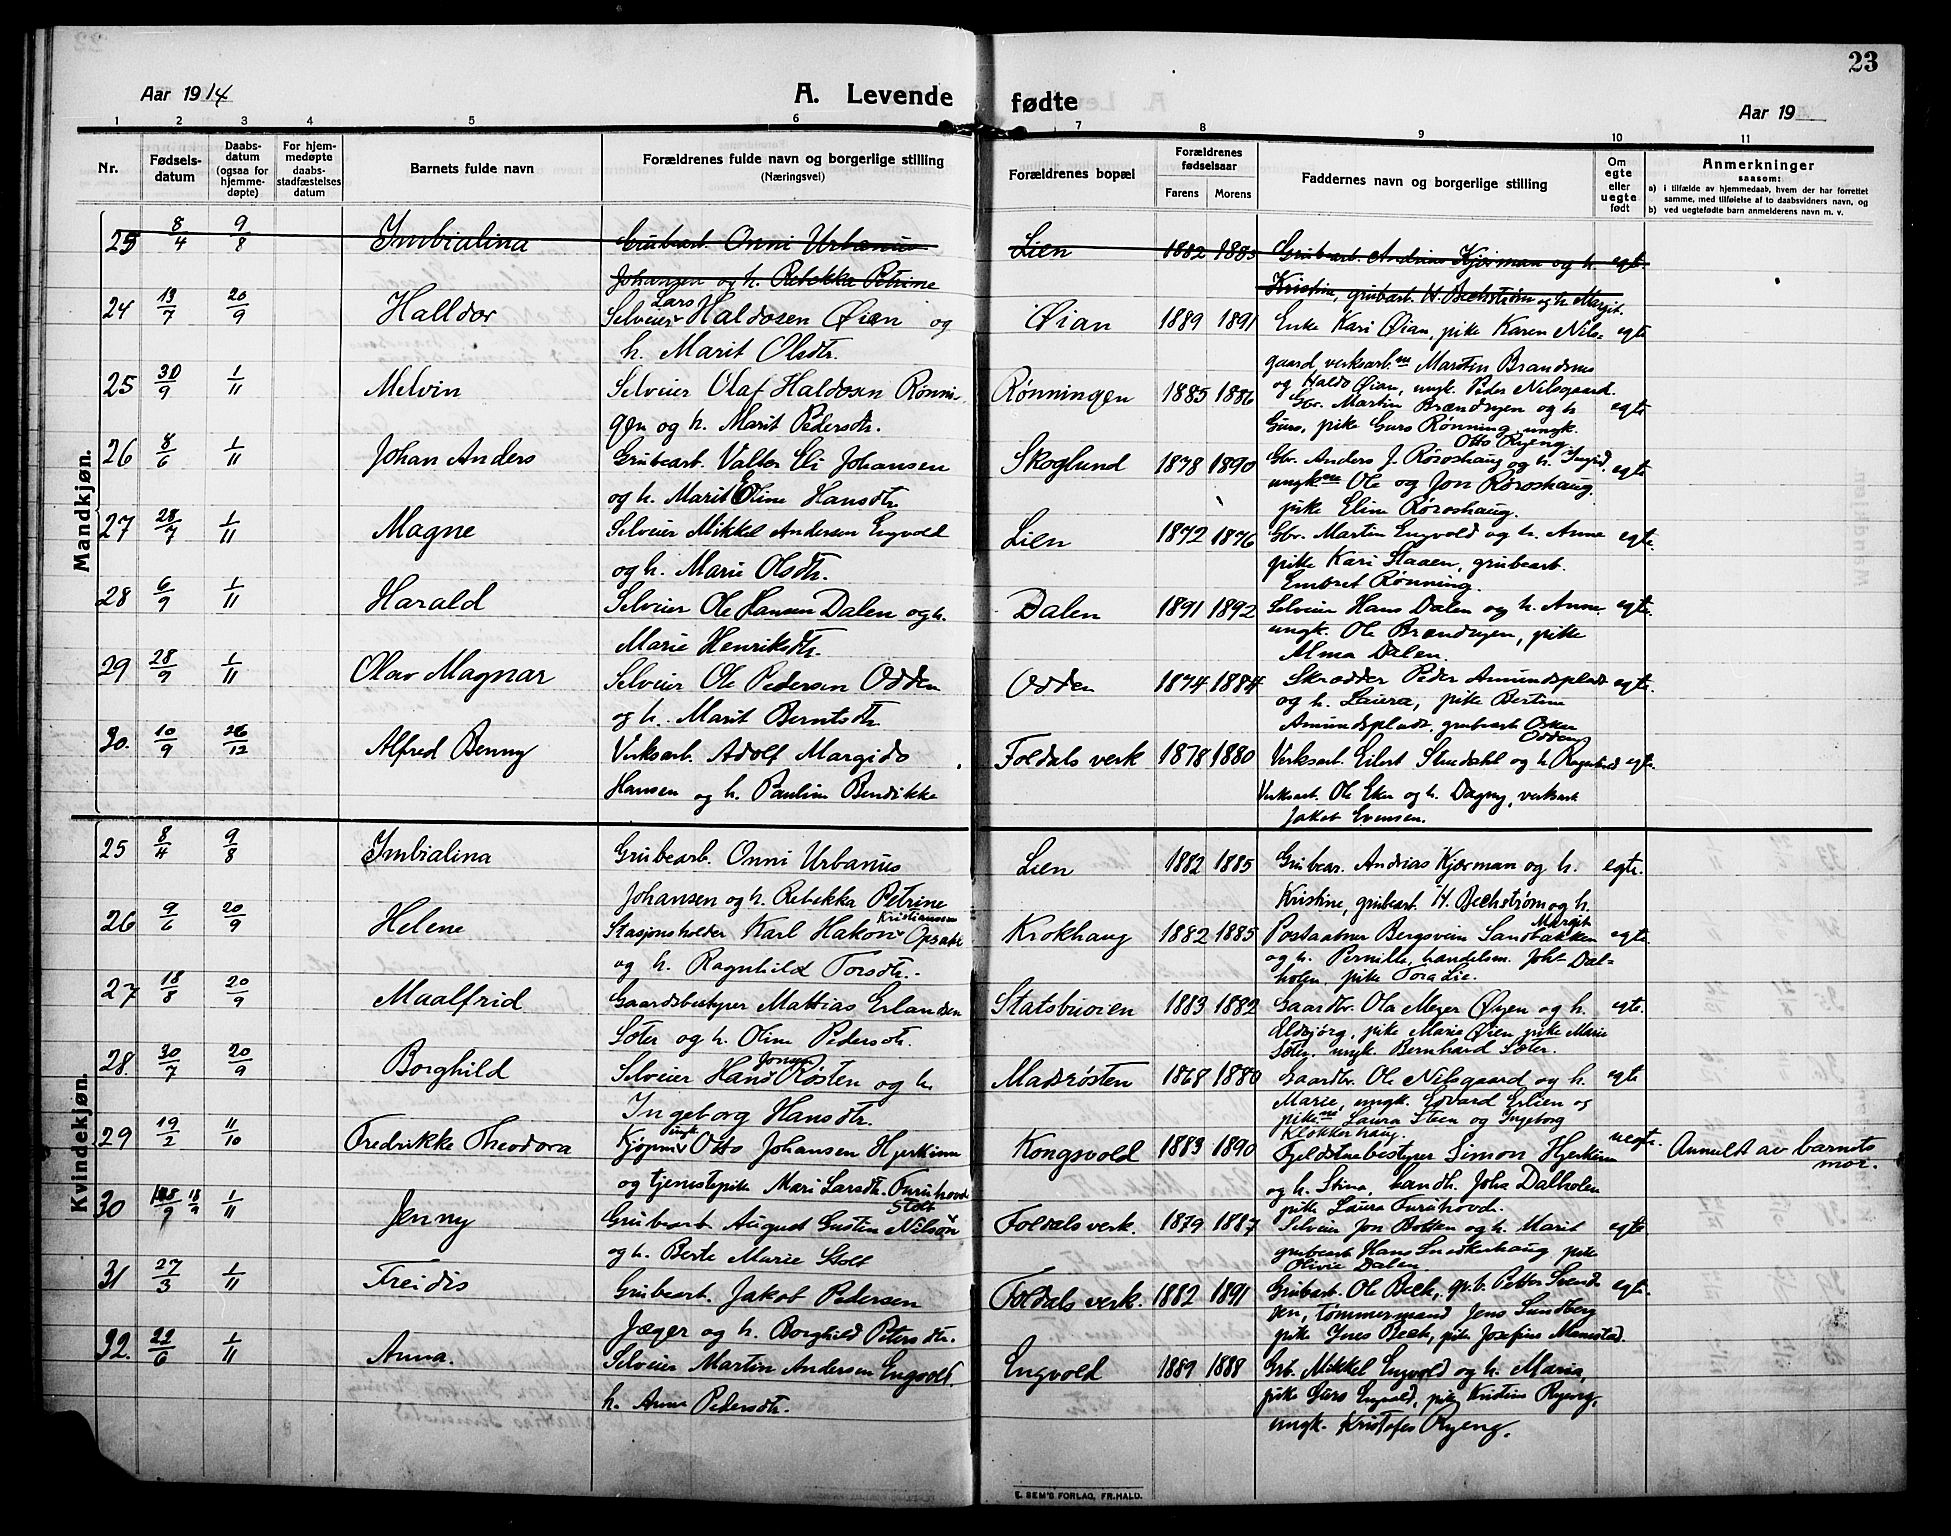 23
Aar 1914
A. Levende fødte
Aar 19
1 2 3 4 5 6 7 8 9 10 11
Nr.
Fødsels-
datum
Daabs-
datum
(ogsaa for
hjemme-
døpte)
For hjem-
medøpte
daabs-
stadfæstelses
datum
Barnets fulde navn
Forældrenes fulde navn og borgerlige stilling
(Næringsvei)
Forældrenes bopæl
Forældrenes
fødselsaar
Farens Morens
Faddernes navn og borgerlige stilling
Om
egte
eller
uegte
født
Anmerkninger
saasom:
a) i tilfælde av hjemmedaab, hvem der har forrettet
samme, med tilføielse af to daabsvidners navn, og
b) ved uegtefødte barn anmelderens navn m. v.
Mandkjøn.
25 8/4 9/8 Imbialina Grubearb. Onni Urbanus Lien 1882 1885 Grubearb. Andrias Kjørman og h. egte.
Johansen og h. Rebekka Petrine Kristine, grubearb. H. Bechstrøm og h. Margit.
24 13/7 20/9 Halldor Selveier Lars Haldosen Øian og Øian 1889 1891 Enke Kari Øian, pike Karen Nils= egte
h. Marit Olsdtr. gaard, verksarb. Martin
og Haldo Øian, ungk. Peder Nilsgaard.
25 30/9 1/11 Melvin Selveier Olaf Haldosen Rønnin Rønningen 1885 1886 Gbr. Martin Brændryen og h. egte
gen og h. Marit Pedersdtr. Guro, pike Guro Rønning, ungk.
Otto Ryeng.
26 8/6 1/11 Johan Anders Grubearb. Valter Eli Johansen Skoglund 1878 1890 Gbr. Anders J. Røroshaug og h. Ingrid, egte
og h. Marit Oline Hansdtr. ungk. Ole og Jon Røroshaug.
pike Eline Røroshaug.
27 28/7 1/11 Magne Selveier Mikkel Andersen Engvold Lien 1872 1876 Gbr. Martin Engvold og h. Anna egte.
og h. Marie Olsdtr. pike Kari Staaen, grubearb.
Embret Rønning.
28 6/9 1/11 Harald Selveier Ole Hansen Dalen og h. Dalen 1891 1892 Selveier Hans Dalen og h. Anne. egte.
Marie Henriksdtr. ungk. Ole Brændryen, pike
Alma Dalen.
29 28/9 1/11 Olav Magnar Selveier Ole Pedersen Odden Odden 1874 1884 Skrædder Peder Amundsplads egte.
og h. Marit Berntsdtr. og h. Laura, pike Bertine
Amundsplads, grubearb. Oskar
Odden
30. 10/9 26/12 Alfred Benny Verksarb. Adolf Margido Foldals verk 1878 1880 Verksarb. Eilert Stendahl og h. Ragnhild egte.
Hansen og h. Pauline Bendikke Verksarb. Ole Eker og h. Dagny, verksarb.
Jakob Evensen.
Kvindekjøn.
25 8/4 9/8 Imbialina Grubearb. Onni Urbanus Lien 1882 1885 Grubear. Andrias Kjørman og h. egte.
Johansen og h. Rebekka Petrine Kristine, grubearb. H. Bechstrøm og h.
Margit
26 9/6 20/9 Helene Stasjonsholder Karl Hakon Kristiansen Opsahl Krokhaug 1882 1885 Postaabner Bergsvein Sandbakken egte.
og h. Ragnhild Torsdtr. og h. Pernille, handelsm. Joh. Dal=
holen, pike Tora Lie.
27 18/8 20/9 Maalfrid Gaardsbestyrer Mattias Erlandsen Statsbuøien 1883 1882 Gaardbr. Ola Meyer Øyen og h. egte.
Sæter og h. Oline Pedersdtr. Eldbjørg, pike Marie Øien, pike Marie
Sæter, ungk. Bernhard Sæter.
28. 30/7 20/9 Borghild Selveier Hans Jonsen Røsten og h. Madsrøsten 1868 1880 Gaardbr. Ole Nilsgaard og h. egte
Ingeborg Hansdtr. Marie, ungk. Edvard Erlien og
pikene Laura Steen og Ingeborg
Klokkerhaug.
29 19/2 11/10 Fredrikke Theodora Kjøpm. ungk. Otto Johansen Hjerkinn Kongsvold 1883 1890 Fjeldstuebestyrer Simon Hjerkinn uegte. Anmeldt av barnets
mor.
og tjenestepike Mari Larsdtr. Furuhovde og h. Stina, handl. Joha Dalholen
pike Laura Furuhovde.
30 18/9 1/11 Jenny Grubearb. August Gustin Nilsson Stolt Foldals verk. 1879 1887 Selveier Jon Bokken og h. Marit egte.
og h. Berte Marie Stolt grubearb. Hans Snedkerhaug, pike
Olivie Dalen.
31 27/3 1/11 Freidis Grubearb. Jakob Pedersen Foldals verk. 1882 1891 Grubearb. Ole Beck, gr.b. Petter Svend egte.
Jæger og h. Borghild Petersdtr. sen, tømmermand Jens Sundberg
pike Ines Beck, pike Josefine
32. 22/6 1/11 Anna. Selveier Martin Andersen Engvold. Engvold 1889 1888 Grb. Mikkel Engvold og h. Maria,
h. Anne Pedersdtr. pike Guro Engvold, pike Kristine Ryeng,
ungk. Kristofer Ryeng.
E. SEM'S FORLAG, FR.HALD.